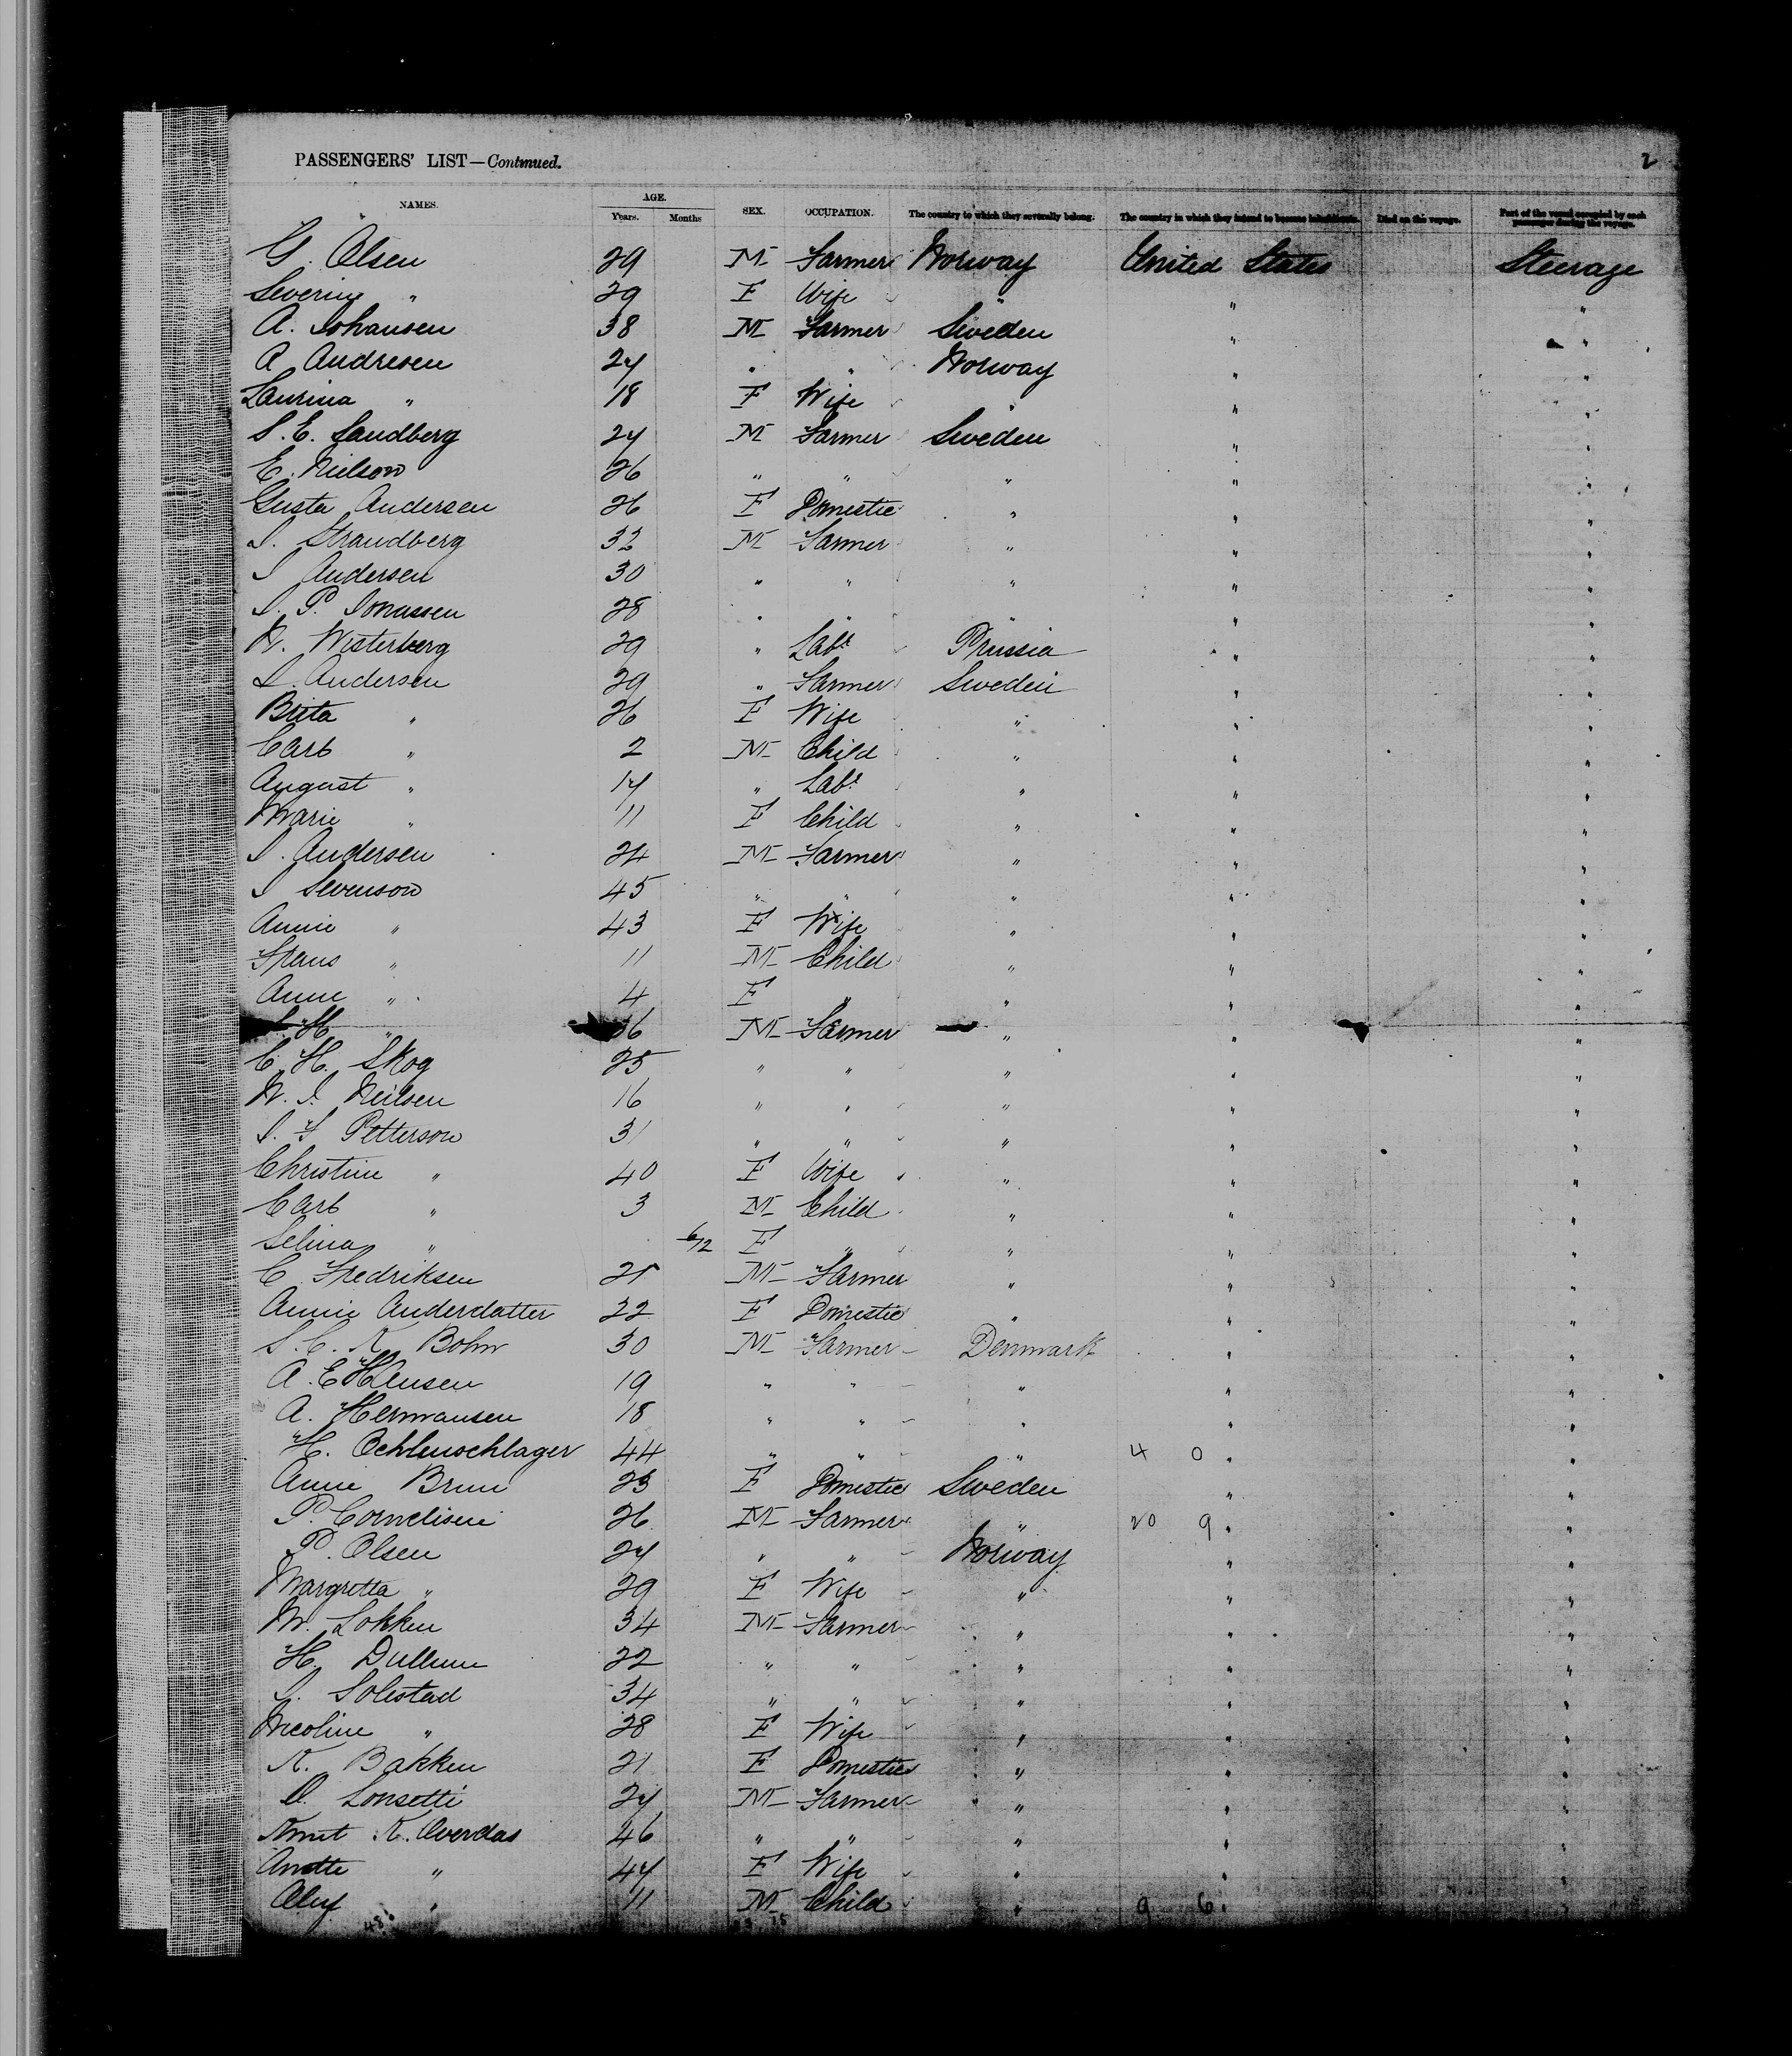 2
PASSENGERS' LIST—Continued.
NAMES. AGE. Years. Months SEX. OCCUPATION. The country to which they severally belong. The country in which they intend to become inhabitants. Died on the voyage. Part of the vessel occupied by each passenger during the voyage.
G. Olsen 29 M Farmer Norway United States Steerage
Severine " 29 F Wife " " "
A. Johansen 38 M Farmer Sweden " "
A Andresen 24 " " Norway " "
Laurina " 18 F Wife " " "
S. E. Sandberg 24 M Farmer Sweden " "
E. Nielson 26 " " " " "
Gusta Andersen 26 F Domestic " " "
J. Strandberg 32 M Farmer " " "
J Andersen 30 " " " " "
J. P. Jonassen 28 " " " "
N. Westerberg 29 " Labr Prussia " "
J. Andersen 29 " Farmer Sweden " "
Brita " 26 F Wife " " "
Carl " 2 M Child " " "
August " 14 " Labr " " "
Marie " 11 F Child " " "
J. Andersen 24 M Farmer " " "
J Svenson 45 " " " " "
Annie " 43 F Wife " " "
Frans " 11 M Child " " "
Anne " 4 F " " " "
H " 6 M Farmer " " "
C. H. Skog 25 " " " " "
N. J. Neilsen 16 " " " " "
J. F Petterson 31 " " " " "
Christine " 40 F Wife " " "
Carl " 3 M Child " " "
Selina " 6/12 F " " " "
C. Fredriksen 21 M Farmer " " "
Annie Andersdatter 22 F Domestic " " "
S. C. K. Bohn 30 M Farmer Denmark " "
A. E Hansen 19 " " " " "
A. Hermansen 18 " " " " "
H. Oehlenschlager 44 " " " 4 0 " "
Anne Brun 23 F Domestic Sweden " "
P. Cornelisen 26 M Farmer " 20 9 " "
P. Olsen 24 " " Norway " "
Margretta " 29 F Wife " " "
M. Lokken 34 M Farmer " " "
H. Dullum 22 " " " " "
J. Solestad 34 " " " " "
Nicoline " 28 F Wife " " "
K. Bakken 21 F Domestic " " "
O. Lonsetti 24 M Farmer " " "
Knut K. Overdas 46 " " " " "
Anette " 44 F Wife " " "
" 11 M Child " 9 6 " "
48